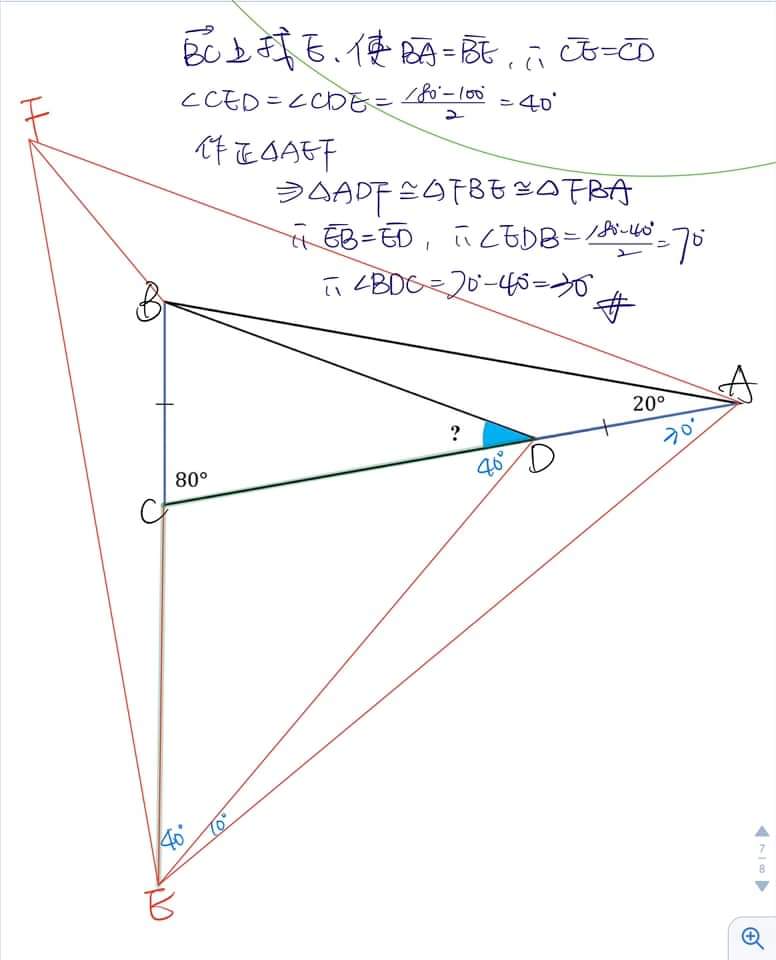 $\overrightarrow{BC}$上找E、使$\overline{BA}=\overline{BE}$,∴$\overline{CE}=\overline{CD}$
∠CED=∠CDE=$\frac{180°-100°}{2}$=40°
作正△AEF
⇒△ADF≅△FBE≅△FBA
∵$\overline{EB}=\overline{ED}$,∴∠EDB=$\frac{180°-40°}{2}$=70°
∴∠BDC=70°-40°=30° #
F
B
A
20°
30°
?
40°
D
80°
C
40°
10°
E
7
8